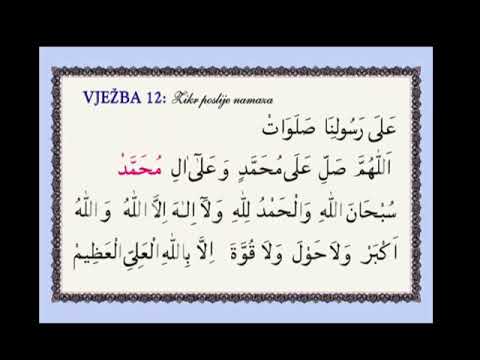 VJEŽBA 12: Zikr poslije namaza
عَلَى رَسُولِنَا صَلَوَاتْ
اَللّٰهُمَّ صَلِّ عَلَى مُحَمَّدٍ وَعَلٰٓى اٰلِ مُحَمَّدْ
سُبْحَانَ اللّٰهِ وَالْحَمْدُ لِلّٰهِ وَلَآ اِلٰهَ اِلَّا اللّٰهُ وَاللّٰهُ
اَكْبَرْ وَلَا حَوْلَ وَلَا قُوَّةَ اِلَّا بِاللّٰهِ الْعَلِيِّ الْعَظِيمْ